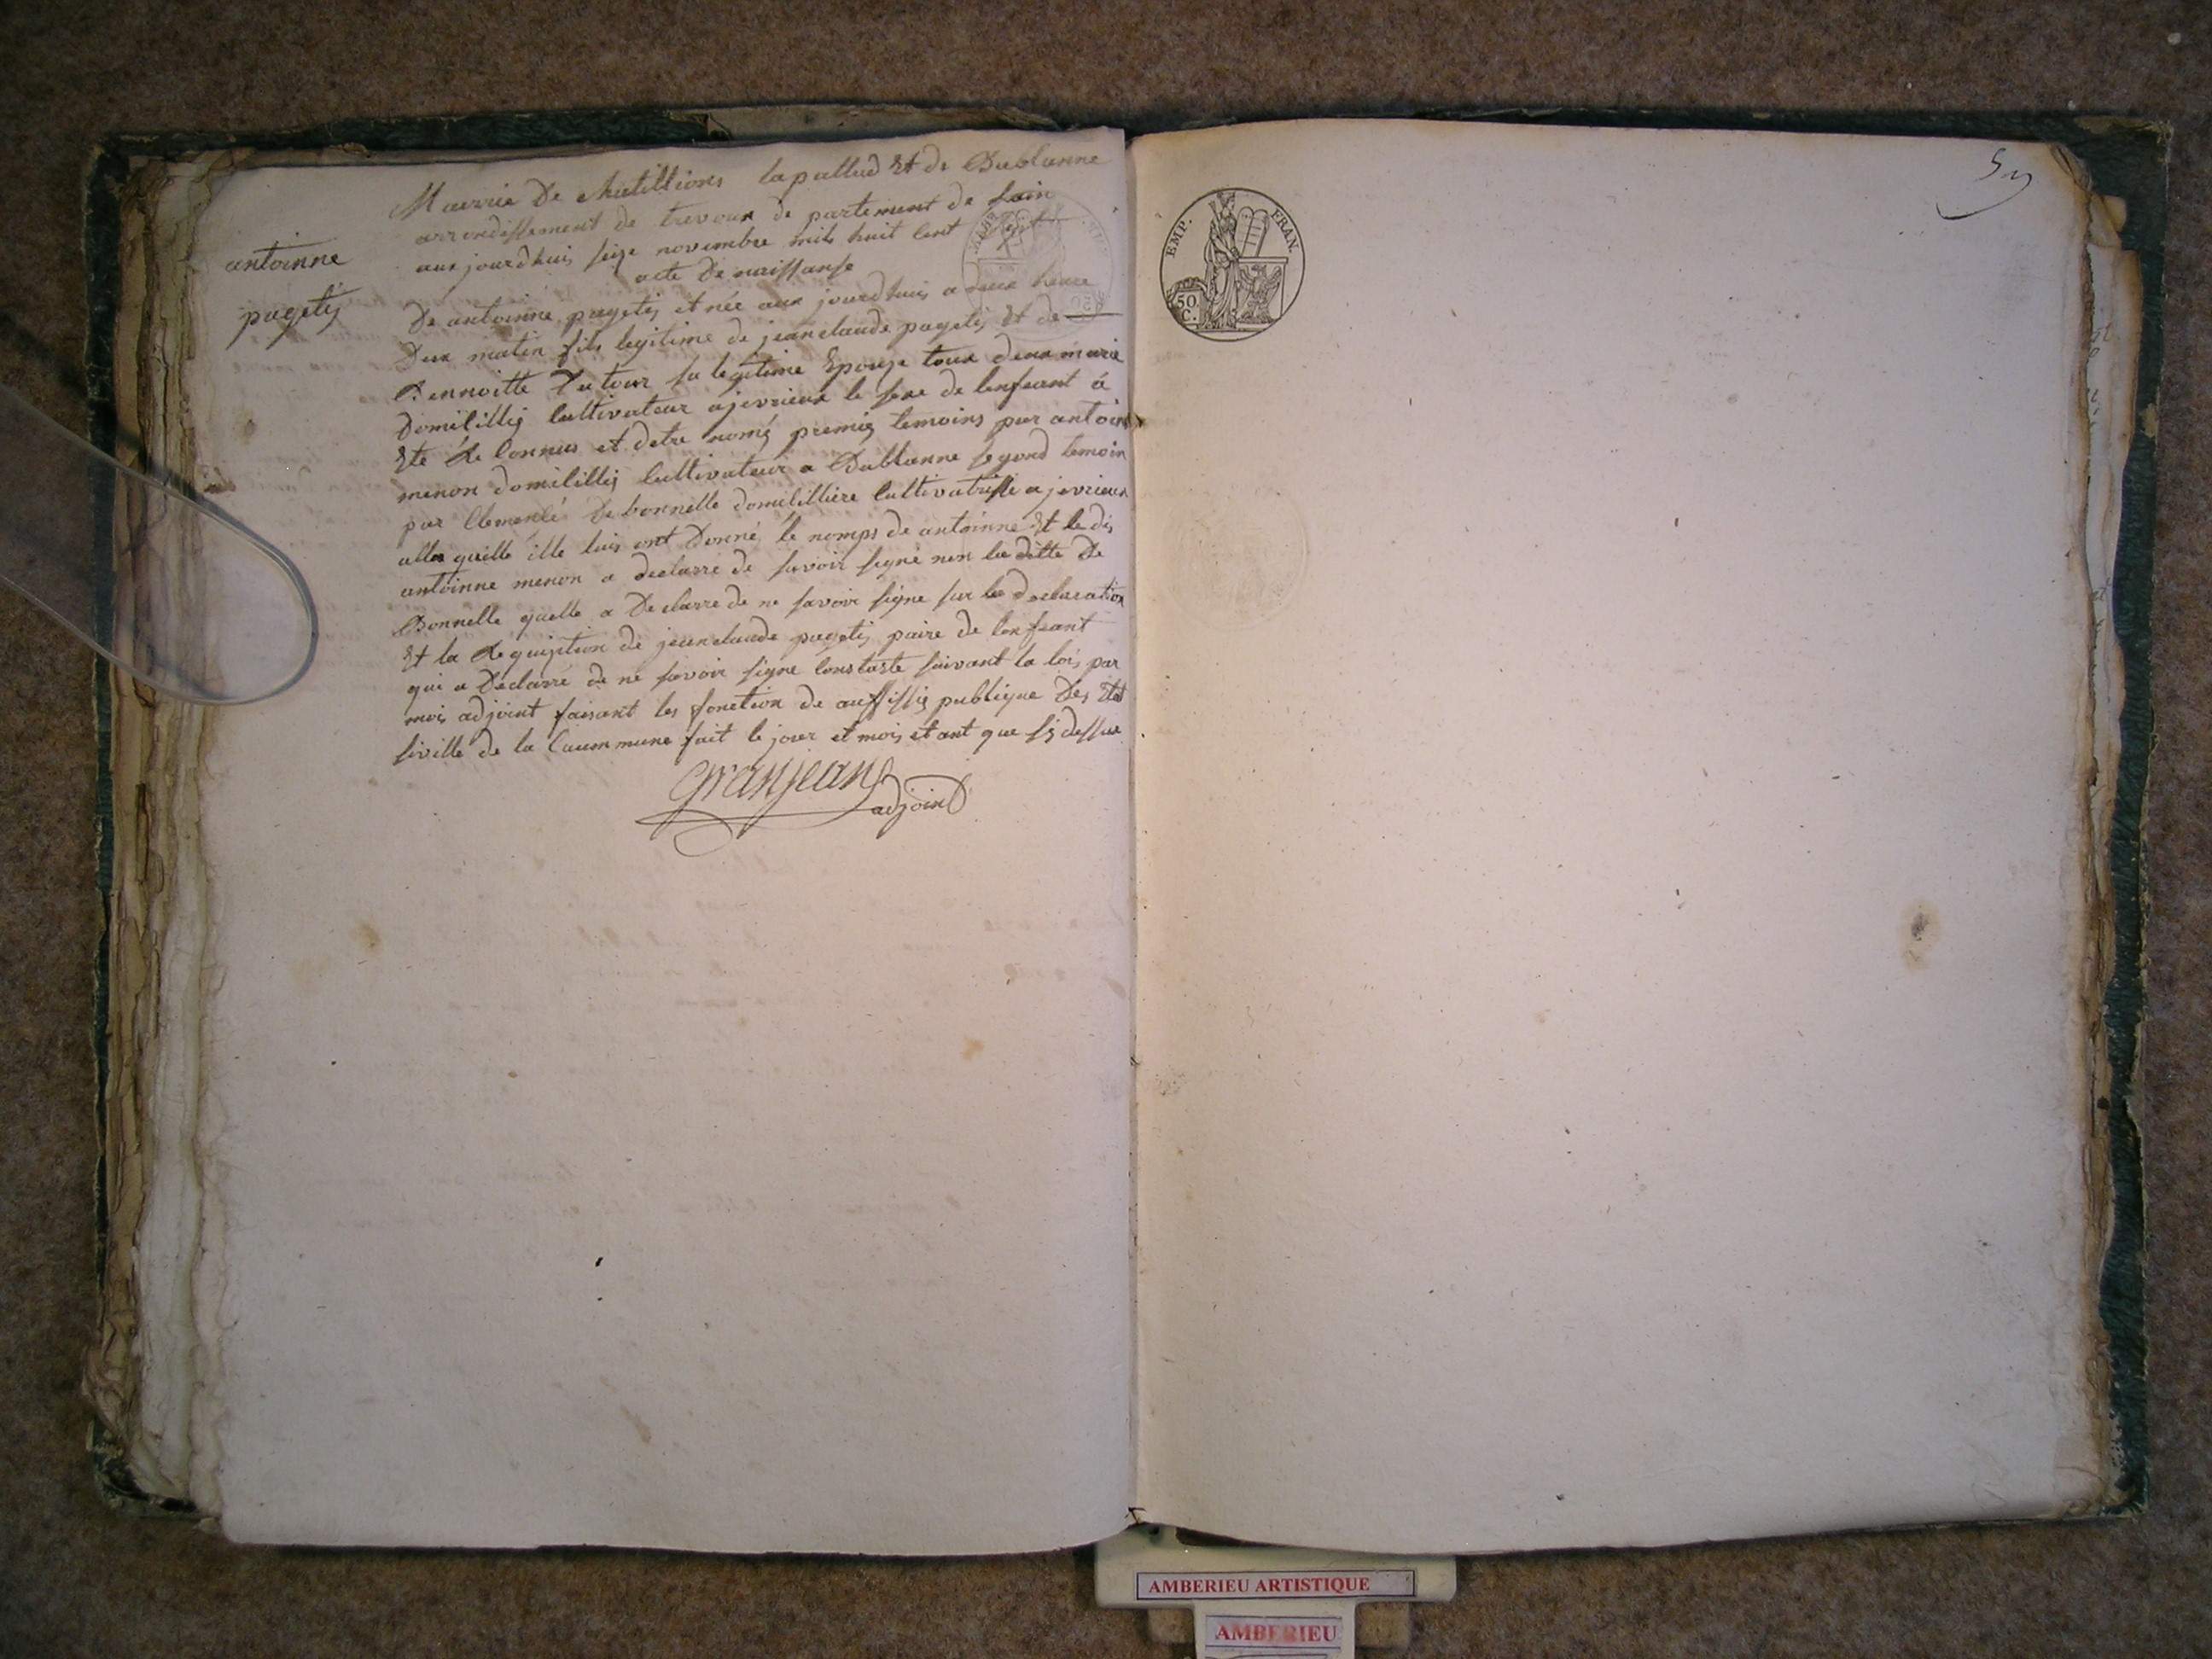 Mairrie De Chatillions lapallud Et de Dublanne
arrondissement de trevoux de partement de lain
aux jourdhuis seize novembre mils huit Cent sept
acte De naissanse
antoinne
pagetis
De antoinne pagetis et née aux jourdhuis a deux heure
Deux matin fils legitime de jean claude pagetis Et de
Bennoitte Dutour sa legitime Epouze toux deux marié
Domicilliés Cultivateur a jevrieux le sexe de lenfeant á
Eté Re Connus et detre nomé premié temoins par antoin
menon domicillié Cultivateur a Dublanne segond temoin
par Clemensé De bonnelle domicillière Cultivatrisse a jevrieux
quille ille luis ont Donné le nomps de antoinne Et le dis
antoinne menon a declarré de savoir signé non la ditte De
Bonnelle quelle a De clarré de ne savoir signe sur la declaration
Et la Requisition de jean claude pagetis paire de lenfeant
qui a Declarré de ne savoir signe Constaste suivant la lois par
mois adjoint faisant les fonction de auffissié publique Des Etat
siville de la Caummune fait le jour et mois et ant que sis dessus
granjean
adjoint
EMP. FRAN.
50
C.
AMBERIEU ARTISTIQUE
AMBERIEU